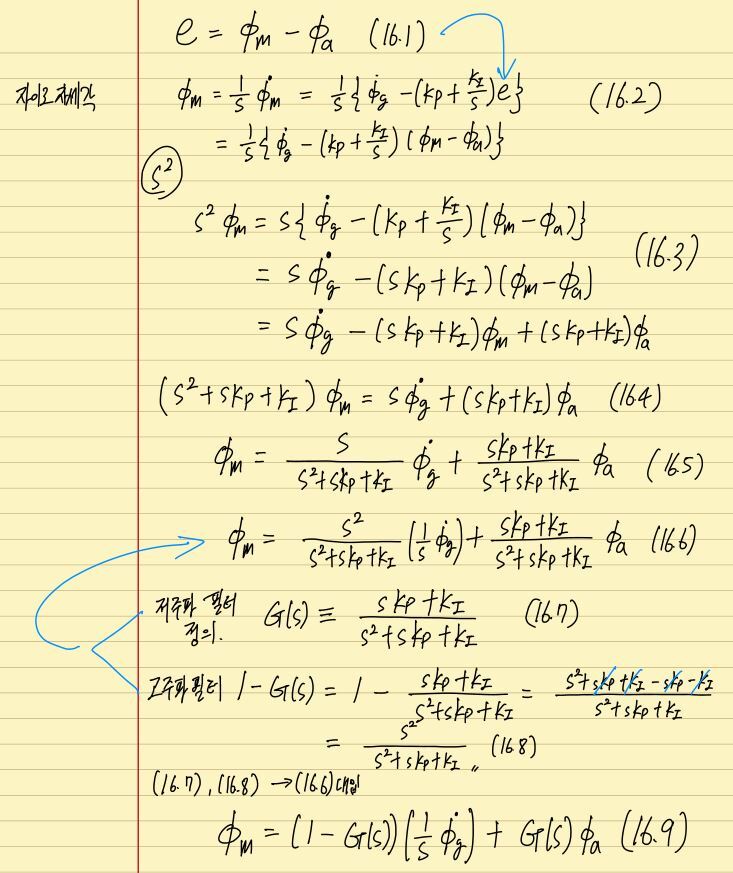 e = ϕm − ϕa (16.1)
자이로 자세각 ϕm = 1/s ϕ̇m = 1/s{ϕ̇g − (kp + kI/s)e} (16.2)
= 1/s{ϕ̇g − (kp + kI/s)(ϕm − ϕa)}
s²
s²ϕm = s{ϕ̇g − (kp + kI/s)(ϕm − ϕa)}
= sϕ̇g − (skp + kI)(ϕm − ϕa) (16.3)
= sϕ̇g − (skp + kI)ϕm + (skp + kI)ϕa
(s² + skp + kI)ϕm = sϕ̇g + (skp + kI)ϕa (16.4)
ϕm = s/(s² + skp + kI) ϕ̇g + (skp + kI)/(s² + skp + kI) ϕa (16.5)
ϕm = s²/(s² + skp + kI) (1/s ϕ̇g) + (skp + kI)/(s² + skp + kI) ϕa (16.6)
저주파 필터 정의. G(s) ≡ (skp + kI)/(s² + skp + kI) (16.7)
고주파 필터 1 − G(s) = 1 − (skp + kI)/(s² + skp + kI) = (s² + skp + kI − skp − kI)/(s² + skp + kI)
= s²/(s² + skp + kI) 〃 (16.8)
(16.7), (16.8) → (16.6) 대입
ϕm = (1 − G(s))(1/s ϕ̇g) + G(s)ϕa (16.9)